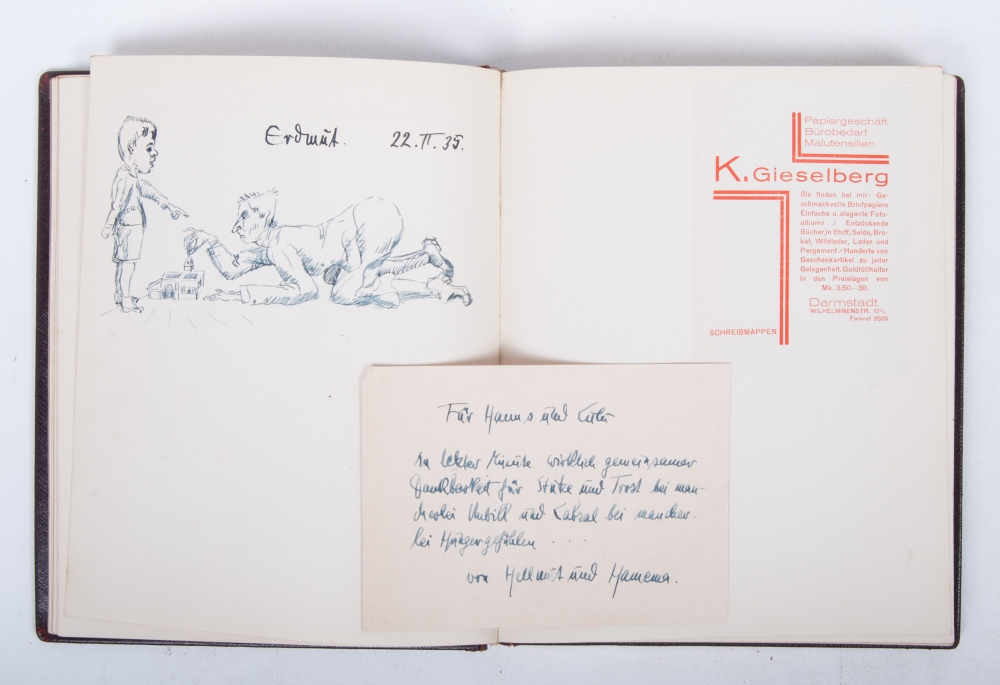 Erdmut. 22.II.35.
Papiergeschäft
Bürobedarf
Malutensilien
K. Gieselberg
Sie finden bei mir: Ge-
schmackvolle Briefpapiere
Einfache u. elegante Foto-
albums / Entzückende
Bücher, in Stoff, Seide, Bro-
kat, Wildleder, Leder und
Pergament / Hunderte von
Geschenkartikel zu jeder
Gelegenheit. Goldfüllhalter
in den Preislagen von
Mk. 3.50—30.
Darmstadt
WILHELMINENSTR.
Fernruf 2526
SCHREIBMAPPEN
Für Hanns und
In letzter Minute wirklich gemeinsamer
Dankbarkeit für Stütze und Trost bei man-
cherlei Unbill und Labsal bei mancher-
lei Hungergefühlen . . . .
von Hellmut und